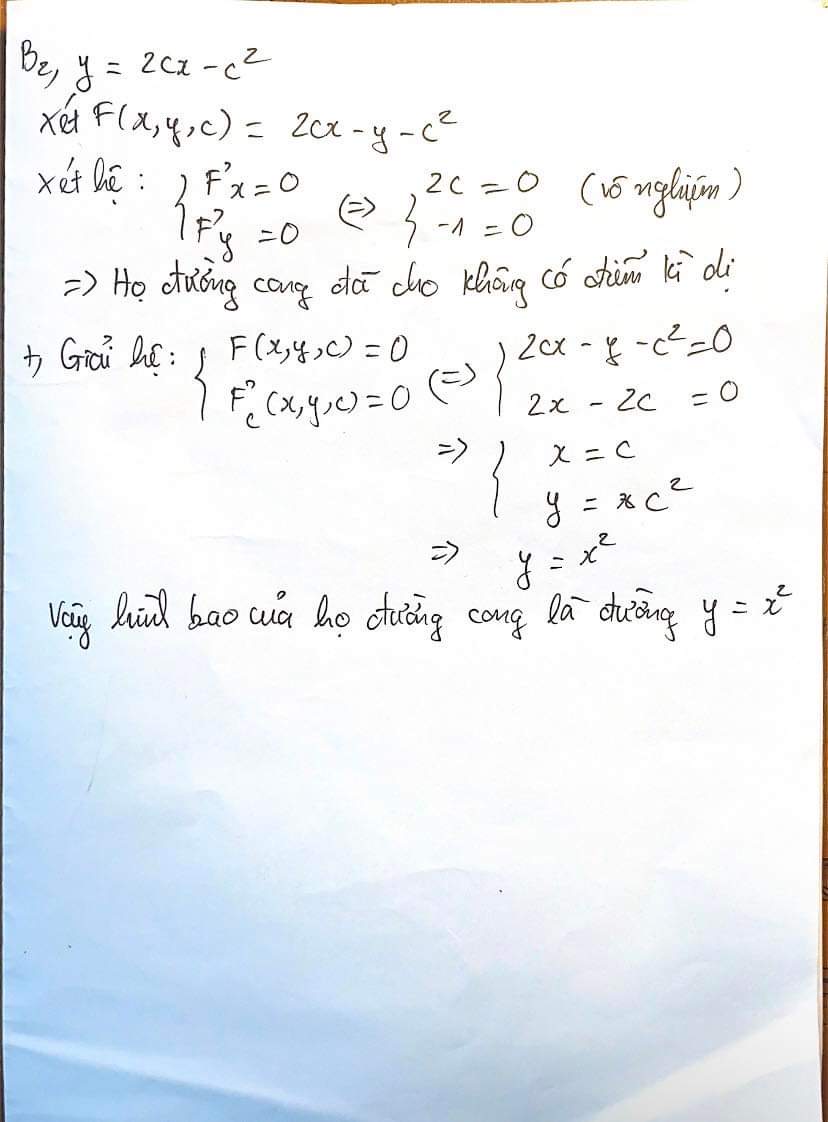 B2, y = 2cx - c²
Xét F(x,y,c) = 2cx - y - c²
Xét hệ : { F'x = 0 (=) { 2c = 0 (vô nghiệm)
F'y = 0 -1 = 0
=> Họ đường cong đã cho không có điểm kì dị
+, Giải hệ : { F(x,y,c) = 0 (=) { 2cx - y - c² = 0
F'c (x,y,c) = 0 2x - 2c = 0
=> { x = c
y = c²
=> y = x²
Vậy hình bao của họ đường cong là đường y = x²